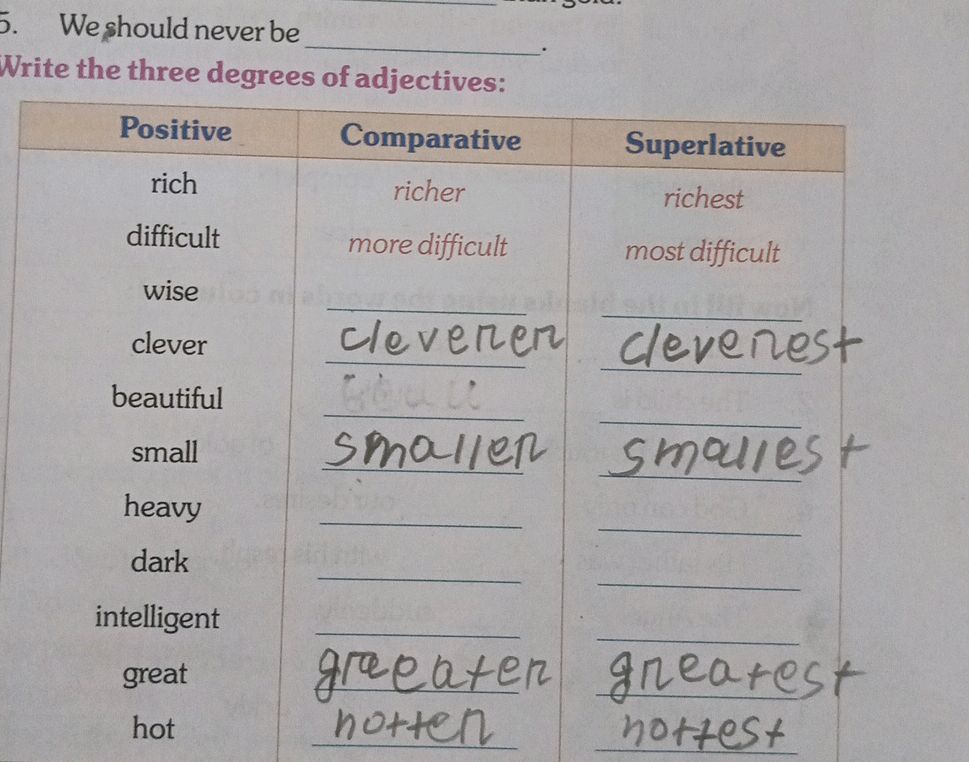 5. We should never be ____.
Write the three degrees of adjectives:
Positive Comparative Superlative
rich richer richest
difficult more difficult most difficult
wise
clever cleverer cleverest
beautiful
small smaller smallest
heavy
dark
intelligent
great greeater greatest
hot hotter hottest